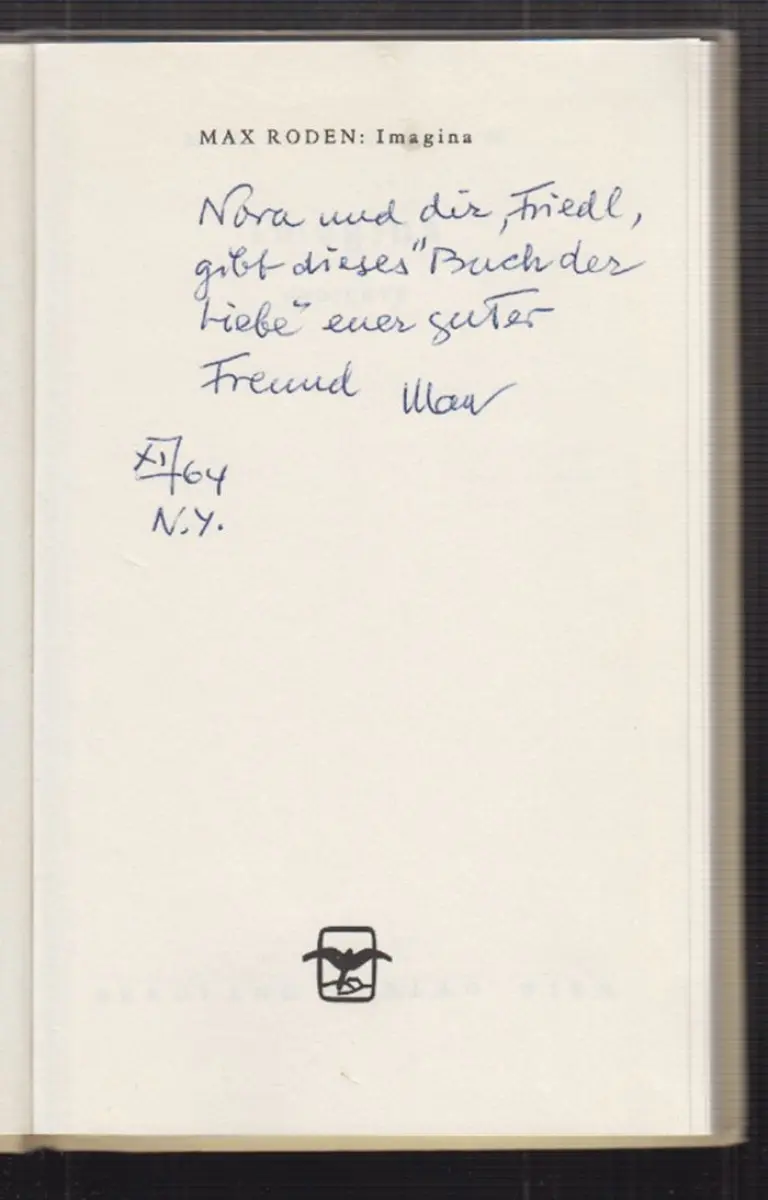 MAX RODEN: Imagina
Nora und dir, Friedl,
gibt dieses "Buch der
Liebe" euer guter
Freund Max
XI/64
N.Y.